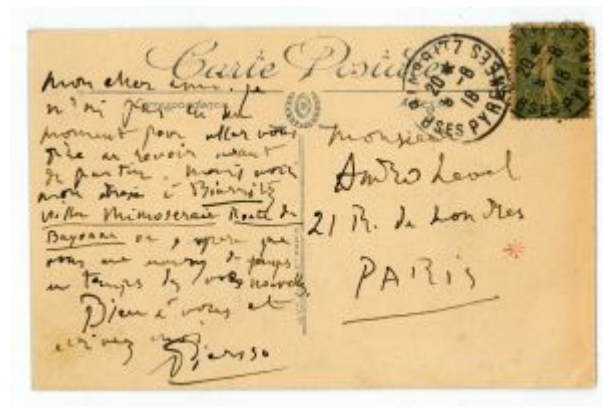 Carte Postale
Correspondance
mon cher ami. je
n'ai pas eu un
moment pour aller vous
dire au revoir avant
de partir. Mais voici
mon adresse à Biarritz
villa Mimoseraie Route de
Bayonne où j'espère que
vous me de temps
en temps de vos nouvelles
Bien à vous et
écrivez moi
Picasso
Monsieur
André Level
21 R. de Londres
PARIS
BIARRITZ
20 *
8 - 8
18
BSES PYRENEES